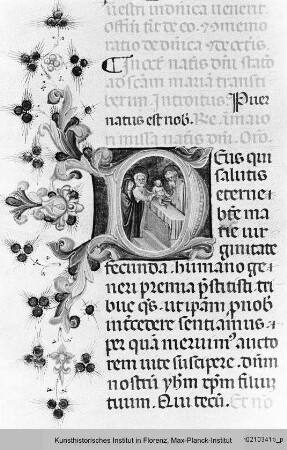 uestri in dominica uenerit
ratio de dnica & de octis.
In eccl' natis dni statio
ad scam mariam transti
berim Introitus. Puer
natus est nob. Re. in maio
ri missa natis dni. Oro.
DEus qui
salutis
eterne i
bte ma
rie uir
ginitate
fecunda. humano ge
neri premia prestitisti tri
bue qs. ut ipam p nob
intcedere sentiamus.
per quam meruim' aucto
rem uite suscipere. dnm
nostrum yhm xpm filium
tuum. Qui tecu. Et no
Kunsthistorisches Institut in Florenz, Max-Planck-Institut